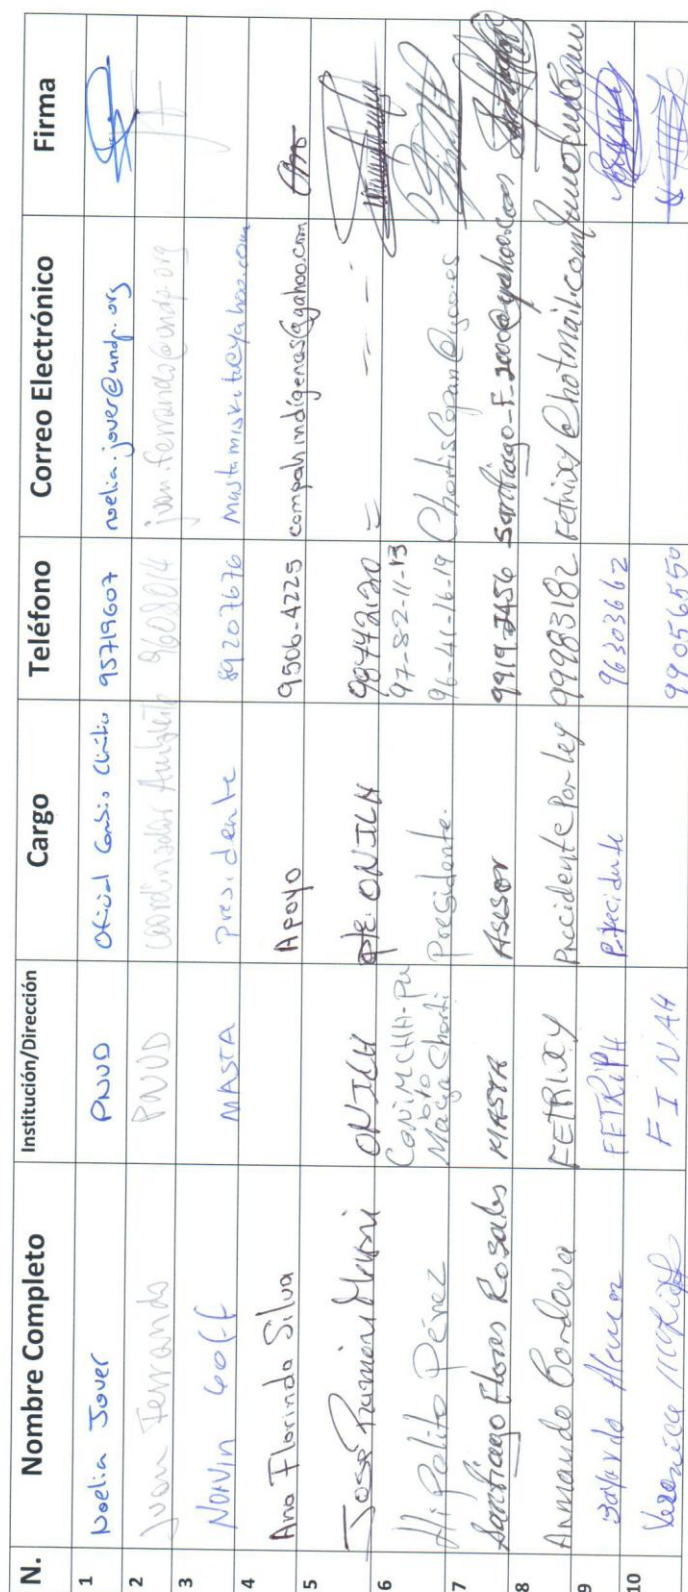 N. Nombre Completo Institución/Dirección Cargo Teléfono Correo Electrónico Firma
1 Noelia Jover PNUD Oficial Cambio Climático 95719607 noelia.jover@undp.org
2 Juan Ferrando PNUD coordinador Ambiente 9608014 juan.ferrando@undp.org
3 Norvin Goff MASTA presidente 89207676 mastamiskitu@yahoo.com
4 Ana Florinda Silva Apoyo 9506-4225 compahindigenas@yahoo.com
5 José Ramiro ONILH ONILH 98742120
6 Hipolito Pérez CONIMCHH- Maya Chorti Presidente. 97-82-11-13
96-41-16-19 Chortiscopan@yahoo.es
7 Santiago Flores Rosales MASTA Asesor 9919-2456 Santiago-F-2000@yahoo.com
8 Armando Cordova FETRIXY Precidente Por ley 99983182 Fetrixy@hotmail.com
9 FETRIPH Precidente 96303662
10 FINAH 99056550